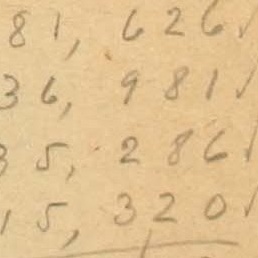 81,626✓
36,981✓
35,286✓
15,320✓